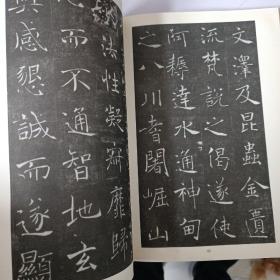 文澤及昆蟲金匱
流梵說之偈遂使
阿耨達水通神甸
之八川耆闍崛山
法性凝寂靡歸
心而不通智地玄
奧感懇誠而遂顯